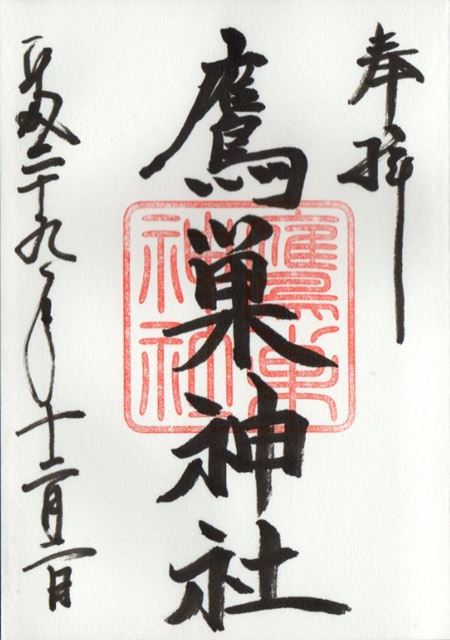 奉拝
鷹巣神社
鷹巣神社
平成二十九年十二月二日